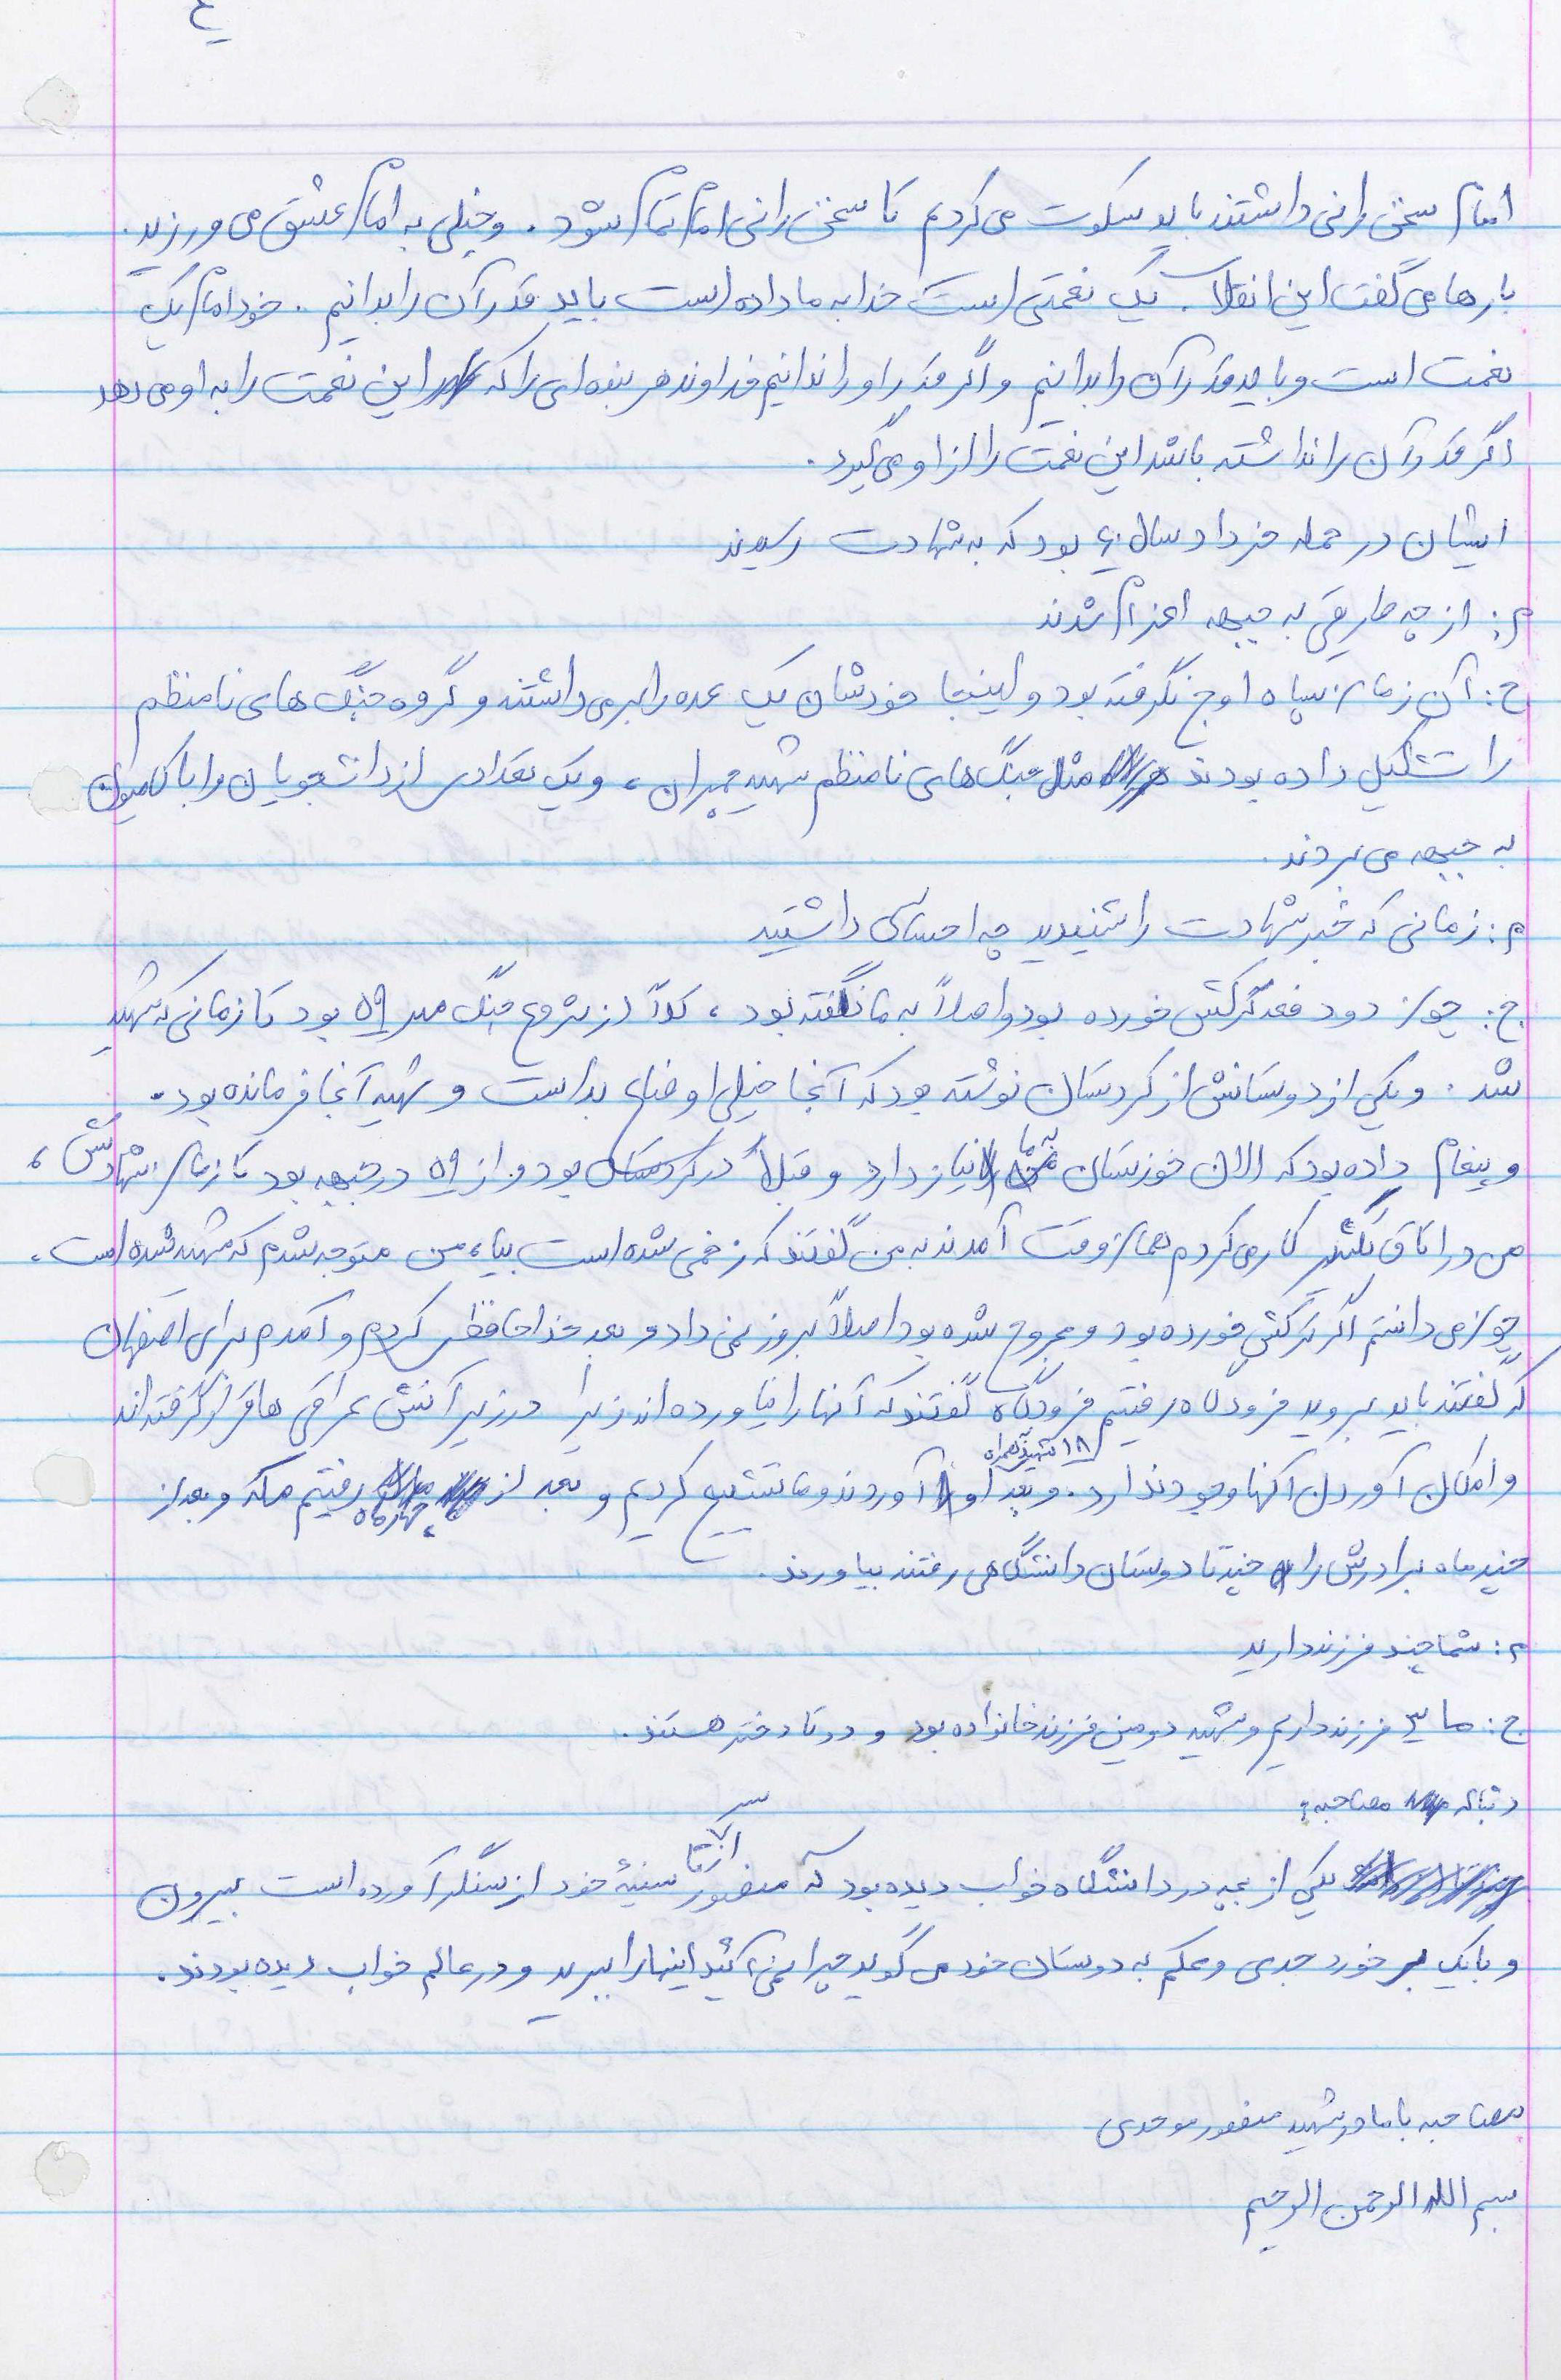 ۴
امام سخن رانی داشتند باید سکوت می کردیم تا سخن رانی امام تمام شود. و خیلی به امام عشق می ورزید.
بارها می گفت این انقلاب یک نعمتی است خدا به ما داده است باید قدر آن را بدانیم. خود امام یک
نعمت است و باید قدر آن را بدانیم و اگر قدر او را ندانیم خداوند هر بنده ای را که این نعمت را به او می دهد
اگر قدر آن را نداشته باشد این نعمت را از او می گیرد.
ایشان در حمله خرداد سال ۶۰ بود که به شهادت رسیدند
م: از چه طریقی به جبهه اعزام شدند
ج: آن زمان سپاه اوج نگرفته بود و اینجا خودشان یک عده را برمی داشتند و گروه جنگ های نامنظم
را تشکیل داده بودند مثل جنگ های نامنظم شهید چمران، و یک تعدادی از دانشجویان را با کامیون
به جبهه می بردند.
م: زمانی که خبر شهادت را شنیدید چه احساسی داشتید
ج: چون دو دفعه ترکش خورده بود و اصلاً به ما نگفته بود، کلاً از شروع جنگ مهر ۵۹ بود تا زمانی که شهید
شد. و یکی از دوستانش از کردستان نوشته بود که آنجا خیلی اوضاع بد است و شهید آنجا فرمانده بود.
و پیغام داده بود که الان خوزستان به ما نیاز دارد و قبلاً در کردستان بود و از ۵۹ در جبهه بود تا زمان شهادتش،
من در اتاق کار می کردم همان وقت آمدند به من گفتند که زخمی شده است بیا، من متوجه شدم که شهید شده است.
چون می دانستم اگر ترکش خورده بود و مجروح شده بود اصلاً بروز نمی داد و بعد خداحافظی کردم و آمدم برای اصفهان
که گفتند باید بروید فرودگاه رفتیم فرودگاه گفتند که آنها را نیاورده اند زیرا در زیر آتش عراقی ها قرار گرفته اند
و امکان آوردن آنها وجود ندارد. و بعد او را ۱۸ شهید همراه آوردند و ما تشییع کردیم و بعد از چهار ماه رفتیم مکه و بعد از
چند ماه برادرش را چند تا دوستان دانشگاهی رفتند بیاورند.
م: شما چند فرزند دارید
ج: ما فرزند داریم و شهید دومین فرزند خانواده بود و دو تا دختر هستند.
دنباله مصاحبه:
یکی از بچه در دانشگاه خواب دیده بود که منصور تا سینهٔ خود از سنگر آورده است بیرون
و با یک برخورد جدی و محکم به دوستان خود می گوید چرا نمی آئید اینها را ببرید و در عالم خواب دیده بودند.
مصاحبه با مادر شهید منصور موحدی
بسم الله الرحمن الرحیم